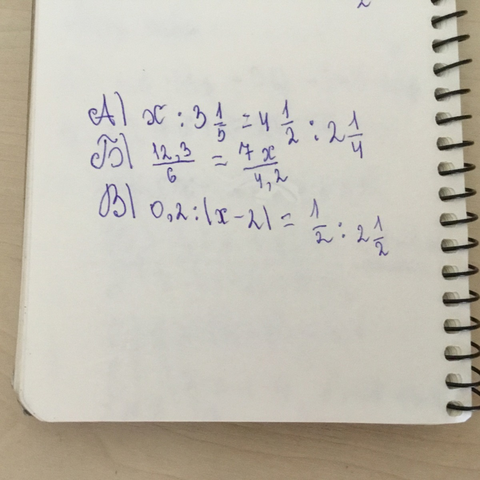 2
А) x : 3 1/5 = 4 1/2 : 2 1/4
Б) 12,3/6 = 7x/4,2
В) 0,2 : (x - 2) = 1/2 : 2 1/2